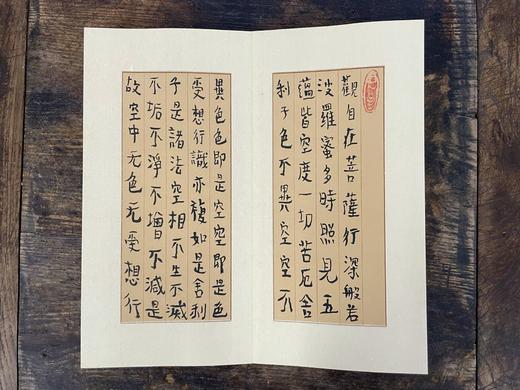 觀自在菩薩行深般若
波羅蜜多時照見五
蘊皆空度一切苦厄舍
利子色不異空空不
異色色即是空空即是色
受想行識亦複如是舍利
子是諸法空相不生不滅
不垢不淨不增不減是
故空中无色无受想行